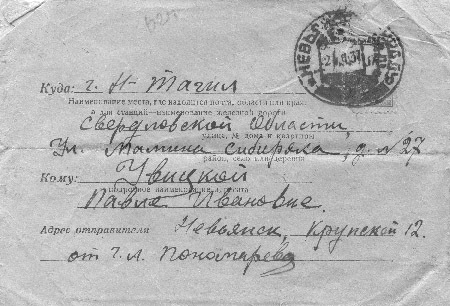 Куда: г. Н-Тагил
Наименование места, где находится почта, области или края,
а для станций—наименование железной дороги
Свердловской Области,
улица, № дома и квартиры
Ул. Мамина сибиряка, д. № 27
район, село или деревня
Кому: Увицкой
подробное наименование адресата
Павле Ивановне.
Адрес отправителя Невьянск, Крупской 12.
от Г. Л. Пономарева